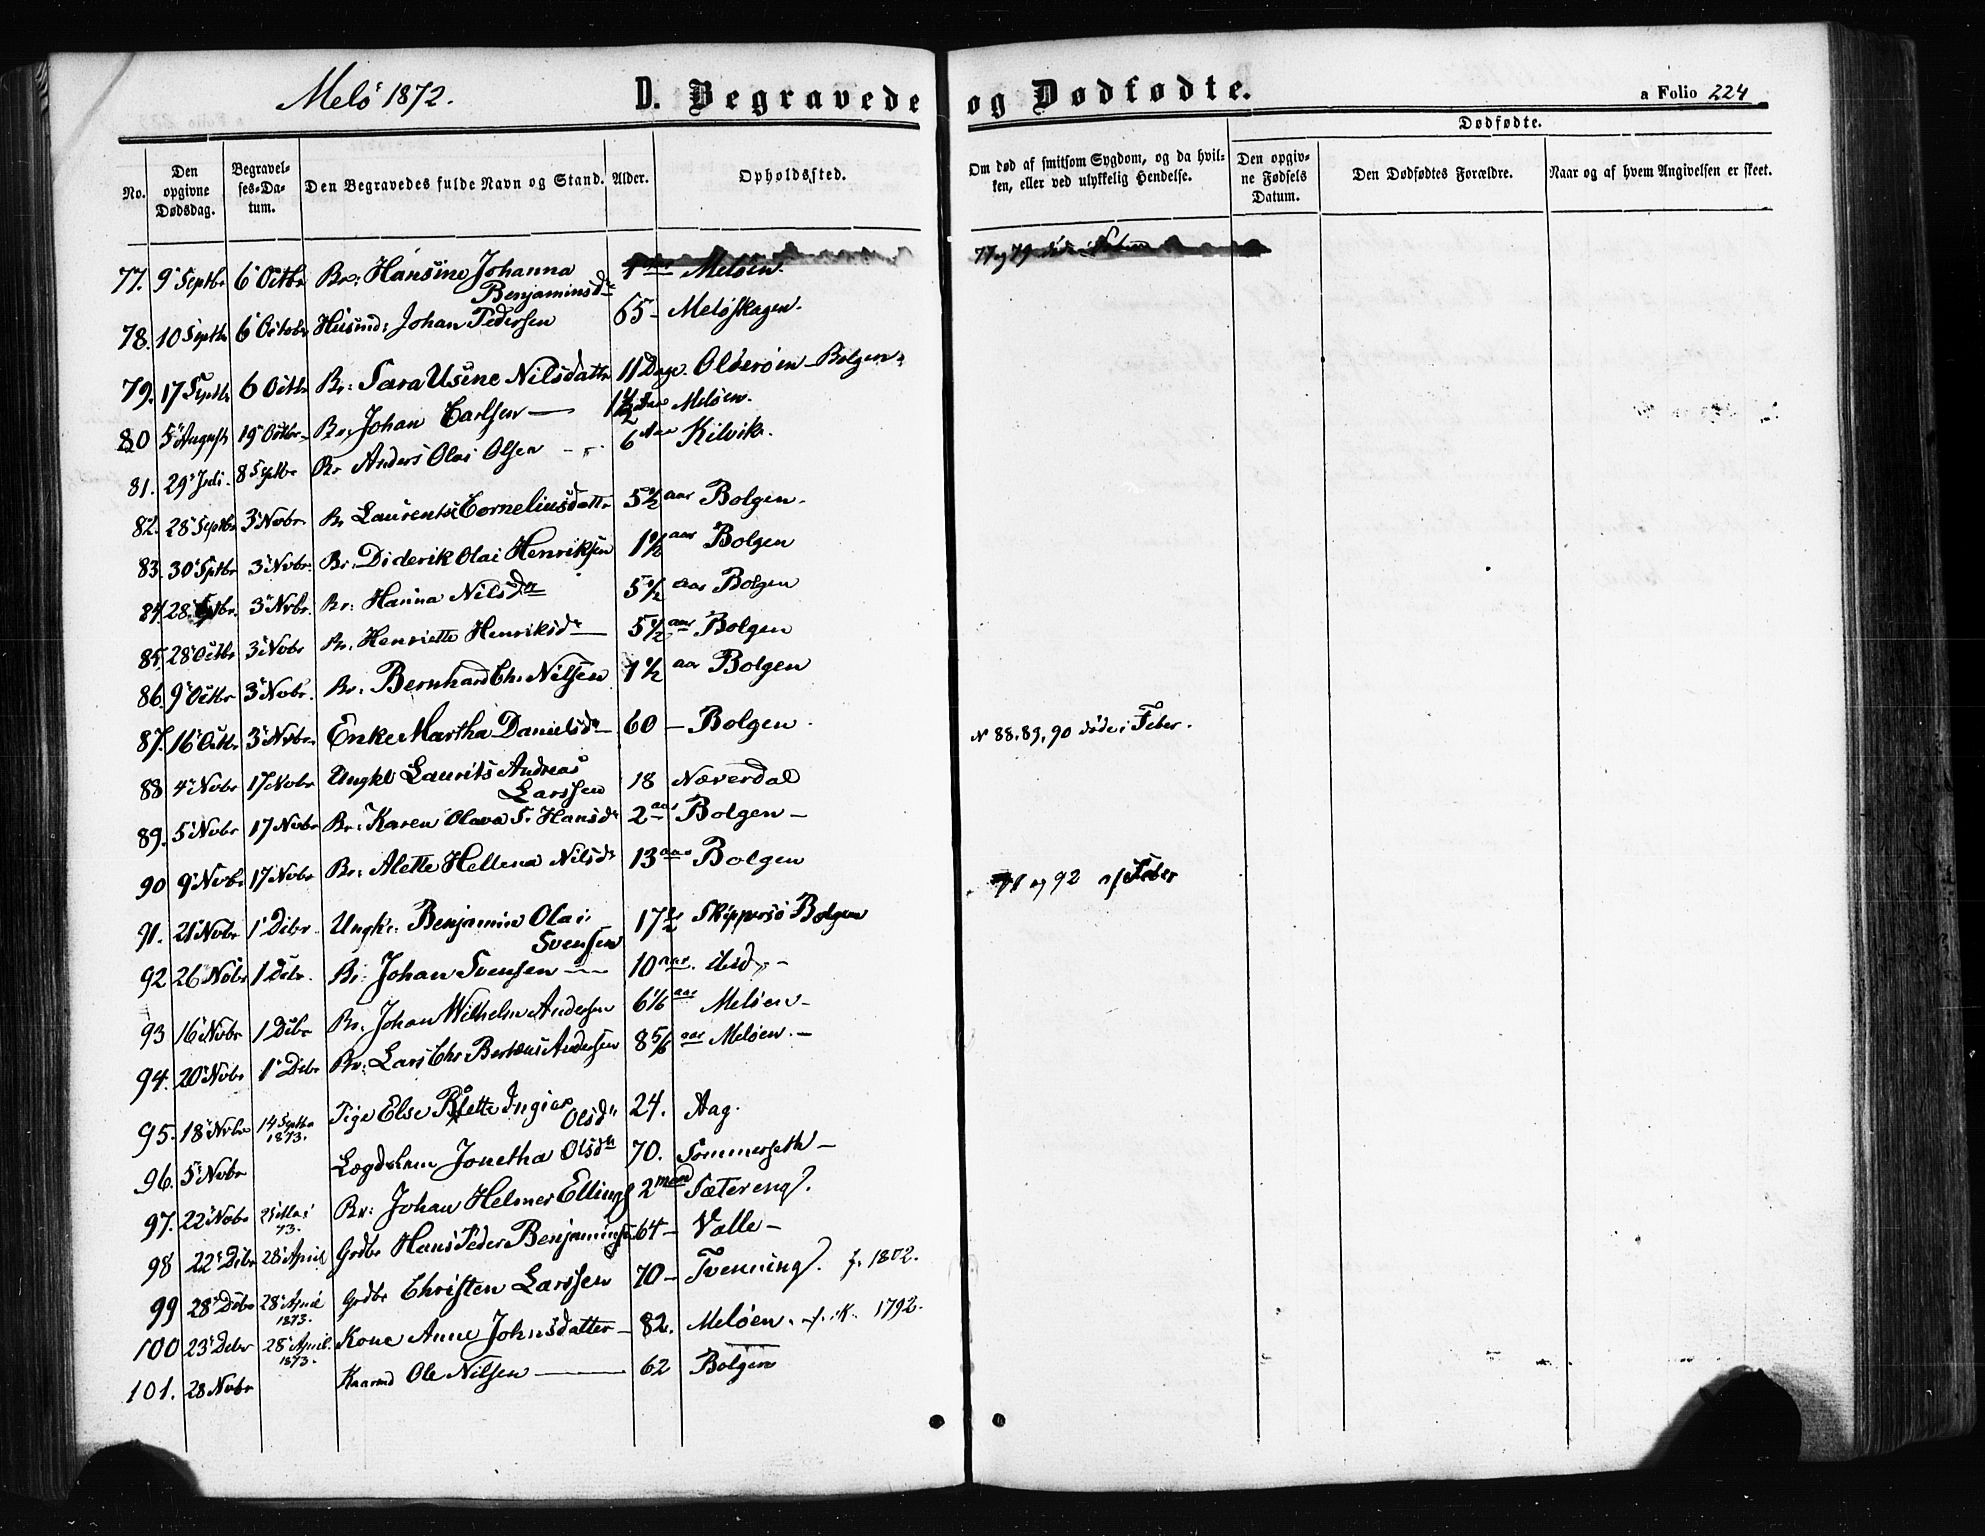 Melö 1872.
D. Begravede og Dødfødte.
a Folio 224
Dødfødte.
No.
Den opgivne Dødsdag.
Begravelses-Datum.
Den Begravedes fulde Navn og Stand.
Alder.
Opholdssted.
Om død af smitsom Sygdom, og da hvilken, eller ved ulykkelig Hendelse.
Den opgivne Fødsels Datum.
Den Dødfødtes Forældre.
Naar og af hvem Angivelsen er skeet.
77. 9 Septbr 6 Octbr Br: Hansine Johanna Benjaminsdr Meløen. 77 og 79 døde
78. 10 Septbr 6 Octobr Husmd: Johan Pedersen 65 - Meløskagen.
79. 17 Septbr 6 Octbr Br: Sara Usine Nilsdattr 11 Dage. Olderøen Bolgen.
80 5 August 19 Octbr Br: Johan Carlsen — Meløen.
81. 29 Juli. 8 Septbr Br Anders Olai Olsen 6 Aar Kilvik.
82. 28 Septbr 3 Novbr. Br Laurentse Corneliusdattr 5½ aar Bolgen.
83. 30 Sptbr 3 Novbr. Br. Diderik Olai Henriksen 1½ aar Bolgen
84. 28 3 Nvbr. Br: Hanna Nilsdr 5½ aar Bolgen
85. 28 Octbr 3 Novbr Br. Henriette Henriksdr — 5½ aar Bolgen
86. 9 Octbr 3 Novbr. Br. Bernhard Chr Nilsen 1½ aar Bolgen
87. 16 Octbr. 3 Novbr. Enke Martha Danielsdr — 60 - Bolgen.
N 88, 89, 90 døde i Feber.
88 4 Novbr 17 Novbr Ungkl Laurits Andreas Larssen 18 Næverdal
89. 5 Novbr 17 Novbr Br: Karen Olava S. Hansdr 2 aar Bolgen -
90 9 Novbr 17 Novbr Br: Alette Hellena Nilsdr 13 aar Bolgen
91 og 92 af Feber
91. 21 Novbr 1 Dcbr. Ungk: Benjamin Olai Svensen 17½ Skippersö Bolgen
92 26 Novbr 1 Dcbr. Br. Johan Svensen — 10 aar. ibid. -
93 16 Novbr 1 Dcbr Br. Johan Wilhelm Andersen 6⅙ aar Meløen -
94. 20 Novbr 1 Dcbr Br: Lars Chr Andersen 8⅚ aar Meløen. -
95. 18 Nvbr 14 Septbr 1873. Pige Else Ingier Olsdr 24. Aag.
96. 5 Novbr Lægdslem Jonetha Olsdr 70. Sommerseth -
97. 22 Novbr Mai 73. Br: Johan Helmer Ellings 2 mand Sætereng.
98 22 Dcbr 28 April Grdbr Hans Peder Benjamins 64 - Valle -
99 28 Dcbr 28 April 1873. Grdbr Christen Larssen 70 - Tvenning. f. 1802.
100 23 Dcbr 28 April 1873. Kone Anne Johnsdatter - 82. Meløen. 1792.
101. 28 Novbr Kaarmd Ole Nilsen — 62 Bolgen